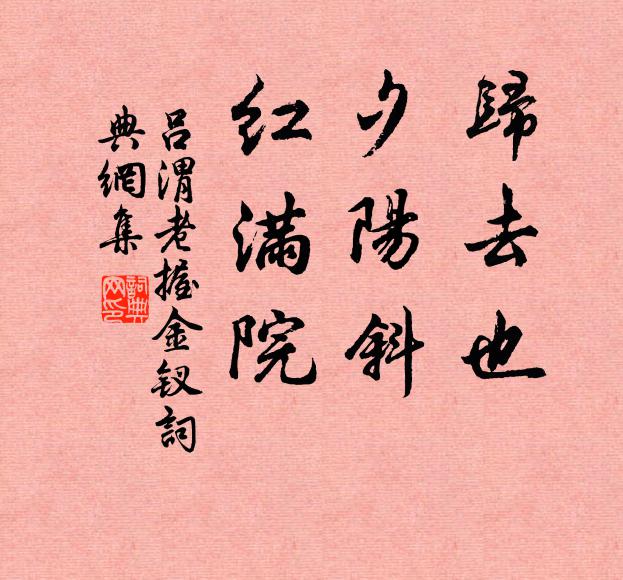 歸去也
夕陽斜
紅滿院
呂渭老握金釵詞
典網集
詞典網印